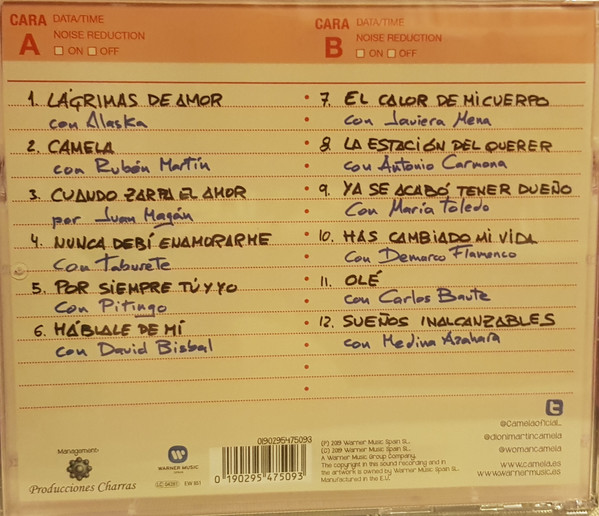 CARA A
DATA/TIME
NOISE REDUCTION
ON OFF
1. LÁGRIMAS DE AMOR
con Alaska
2. CAMELA
con Rubén Martín
3. CUANDO ZARPA EL AMOR
por Juan Magán
4. NUNCA DEBÍ ENAMORARME
con Taburete
5. POR SIEMPRE TÚ Y YO
con Pitingo
6. HÁBLALE DE MÍ
con David Bisbal
CARA B
DATA/TIME
NOISE REDUCTION
ON OFF
7. EL CALOR DE MI CUERPO
con Javiera Mena
8. LA ESTACIÓN DEL QUERER
con Antonio Carmona
9. YA SE ACABÓ TENER DUEÑO
Con María Toledo
10. HAS CAMBIADO MI VIDA
con Demarco Flamenco
11. OLÉ
con Carlos Baute
12. SUEÑOS INALCANZABLES
con Medina Azahara
Management:
Producciones Charras
WARNER MUSIC
SPAIN
LC-04281
EW 851
0190295475093
0 190295 475093
(P) 2019 Warner Music Spain SL.
(C) 2019 Warner Music Spain SL.
A Warner Music Group Company.
The copyright in this sound recording and in
the artwork is owned by Warner Music Spain SL.
Manufactured in the E.U.
@Camelaoficial_
@dionimartincamela
@womancamela
www.camela.es
www.warnermusic.es